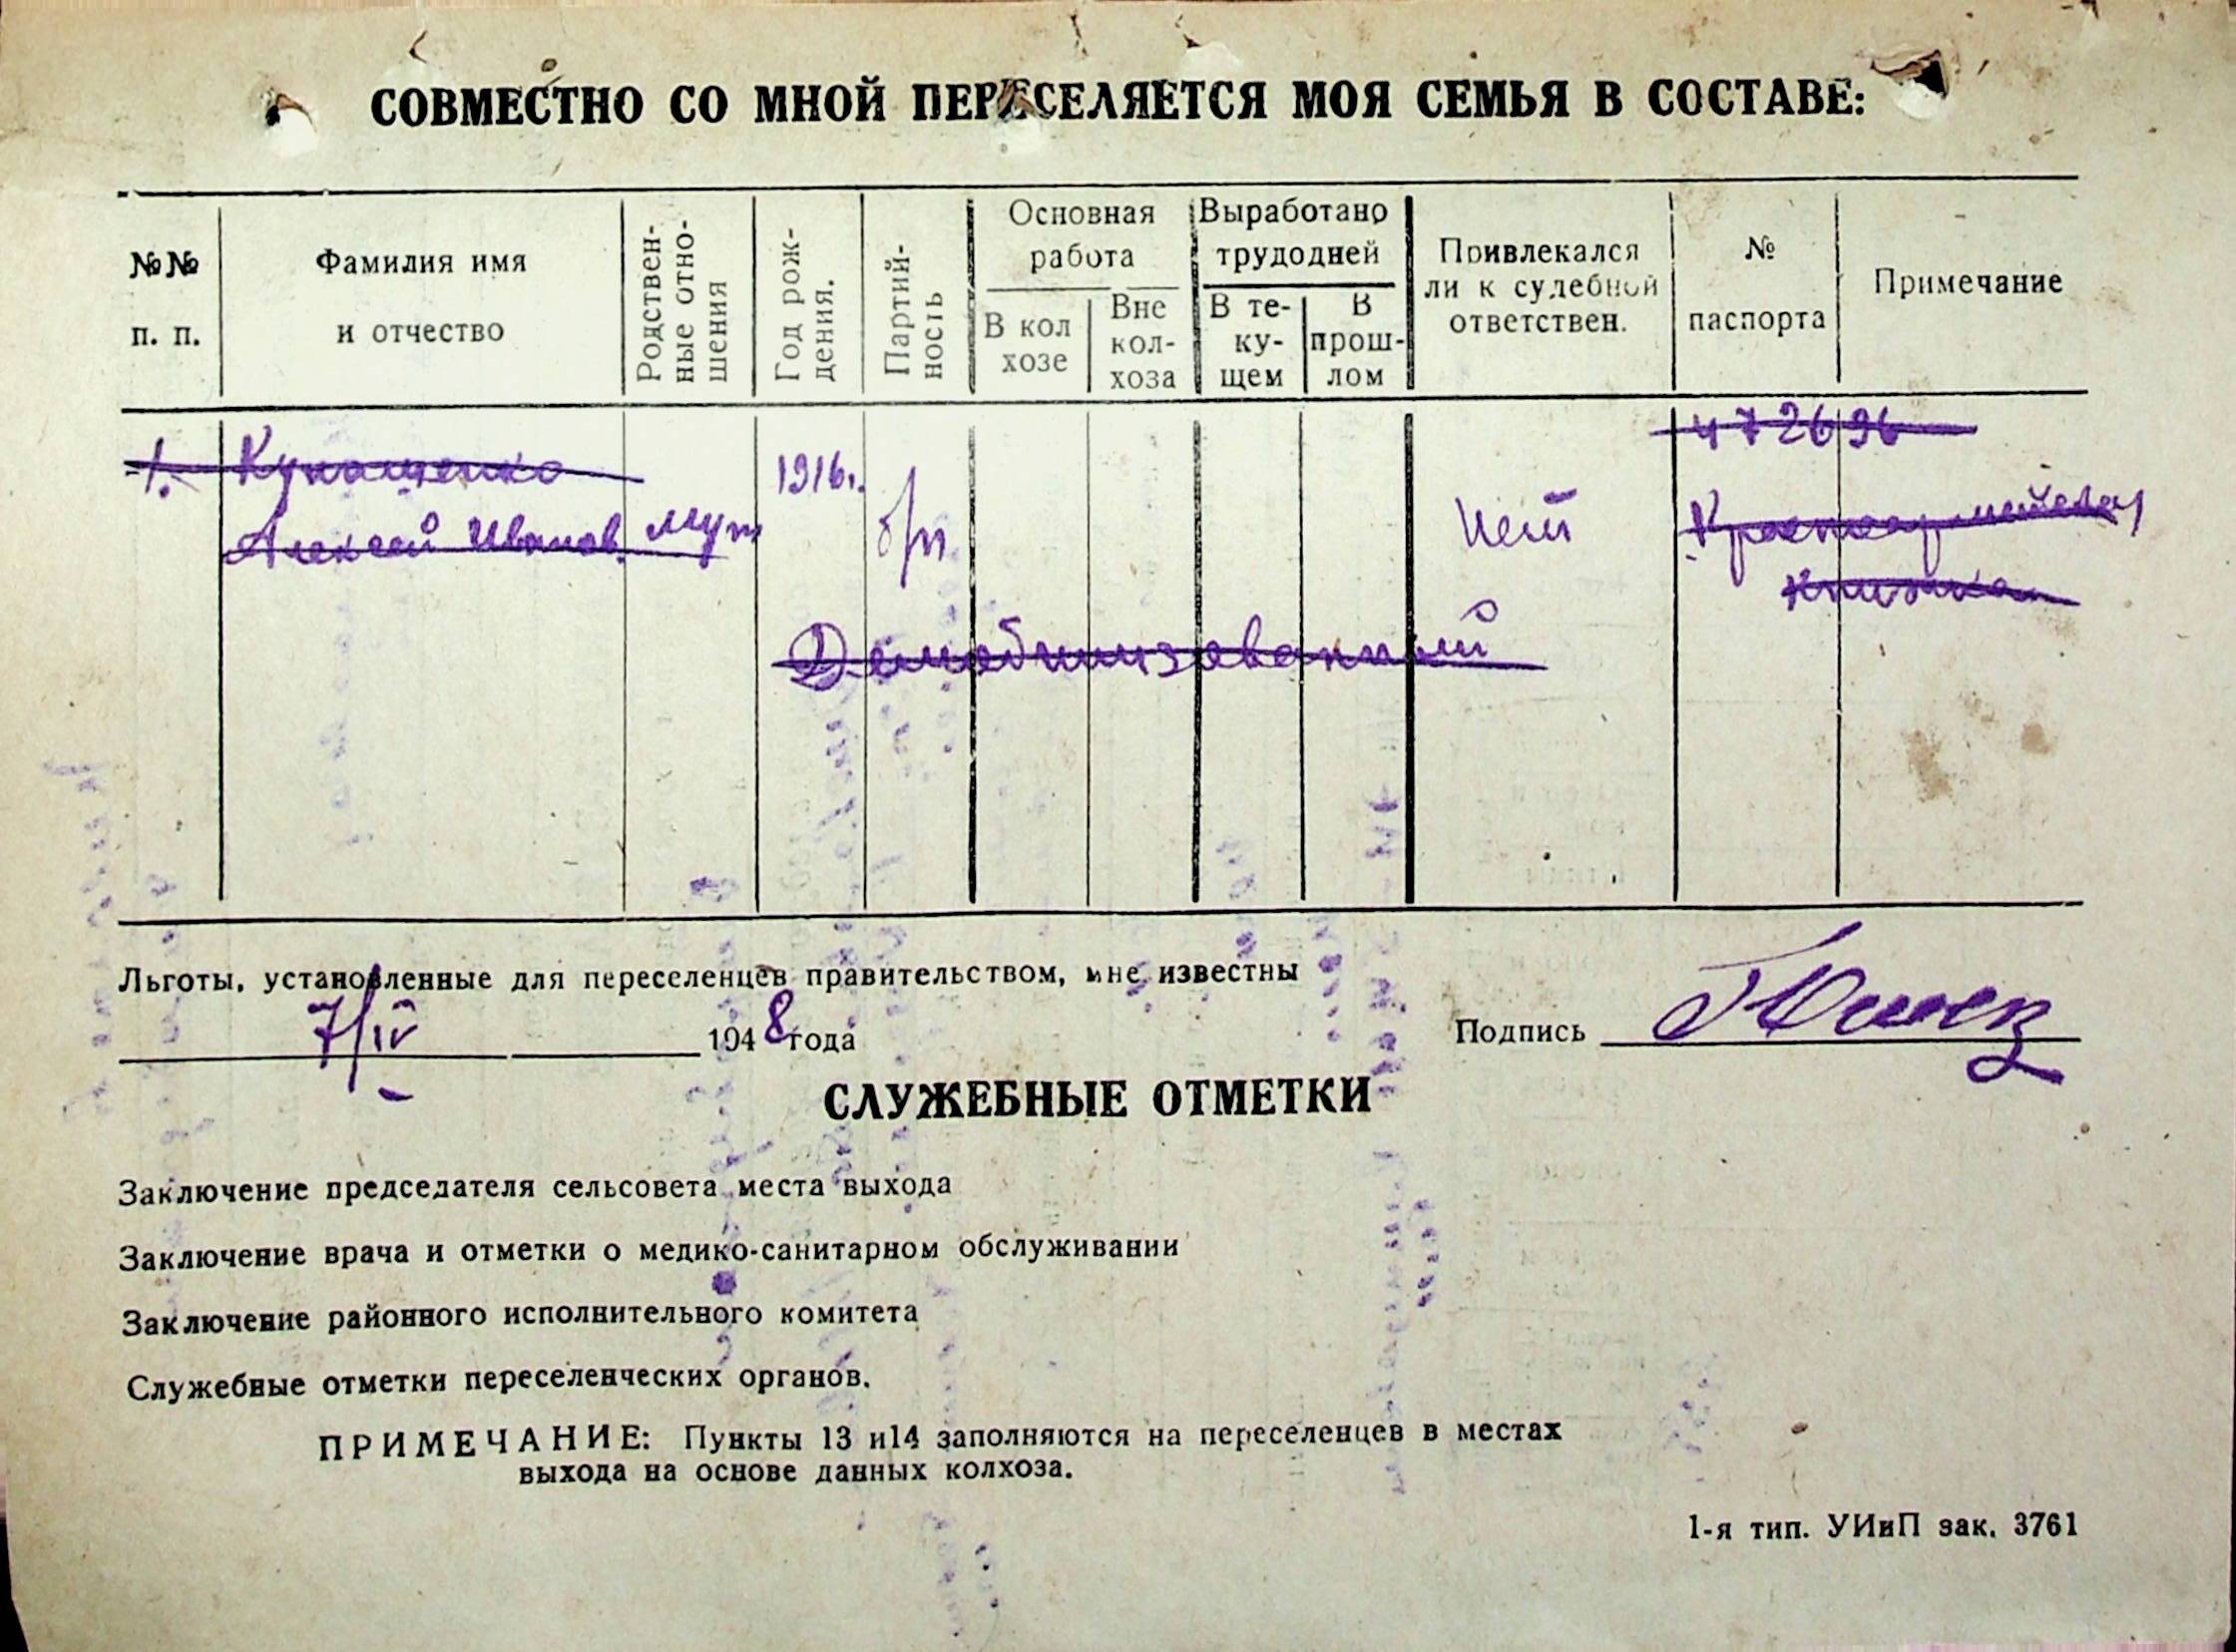 СОВМЕСТНО СО МНОЙ ПЕРЕСЕЛЯЕТСЯ МОЯ СЕМЬЯ В СОСТАВЕ:
№№
п. п.
Фамилия имя
и отчество
Родствен-
ные отно-
шения
Год рож-
дения.
Партий-
ность
Основная
работа
В кол
хозе
Вне
кол-
хоза
Выработано
трудодней
В те-
ку-
щем
В
прош-
лом
Привлекался
ли к судебной
ответствен.
№
паспорта
Примечание
1.
Алексей Иванов.
муж
1916г.
б/п
Нет
472696
Красноармейская
книжка
Демобилизованный
Льготы, установленные для переселенцев правительством, мне известны
7/IV 1948 года
Подпись
СЛУЖЕБНЫЕ ОТМЕТКИ
Заключение председателя сельсовета места выхода
Заключение врача и отметки о медико-санитарном обслуживании
Заключение районного исполнительного комитета
Служебные отметки переселенческих органов.
ПРИМЕЧАНИЕ: Пункты 13 и14 заполняются на переселенцев в местах
выхода на основе данных колхоза.
1-я тип. УИиП зак. 3761